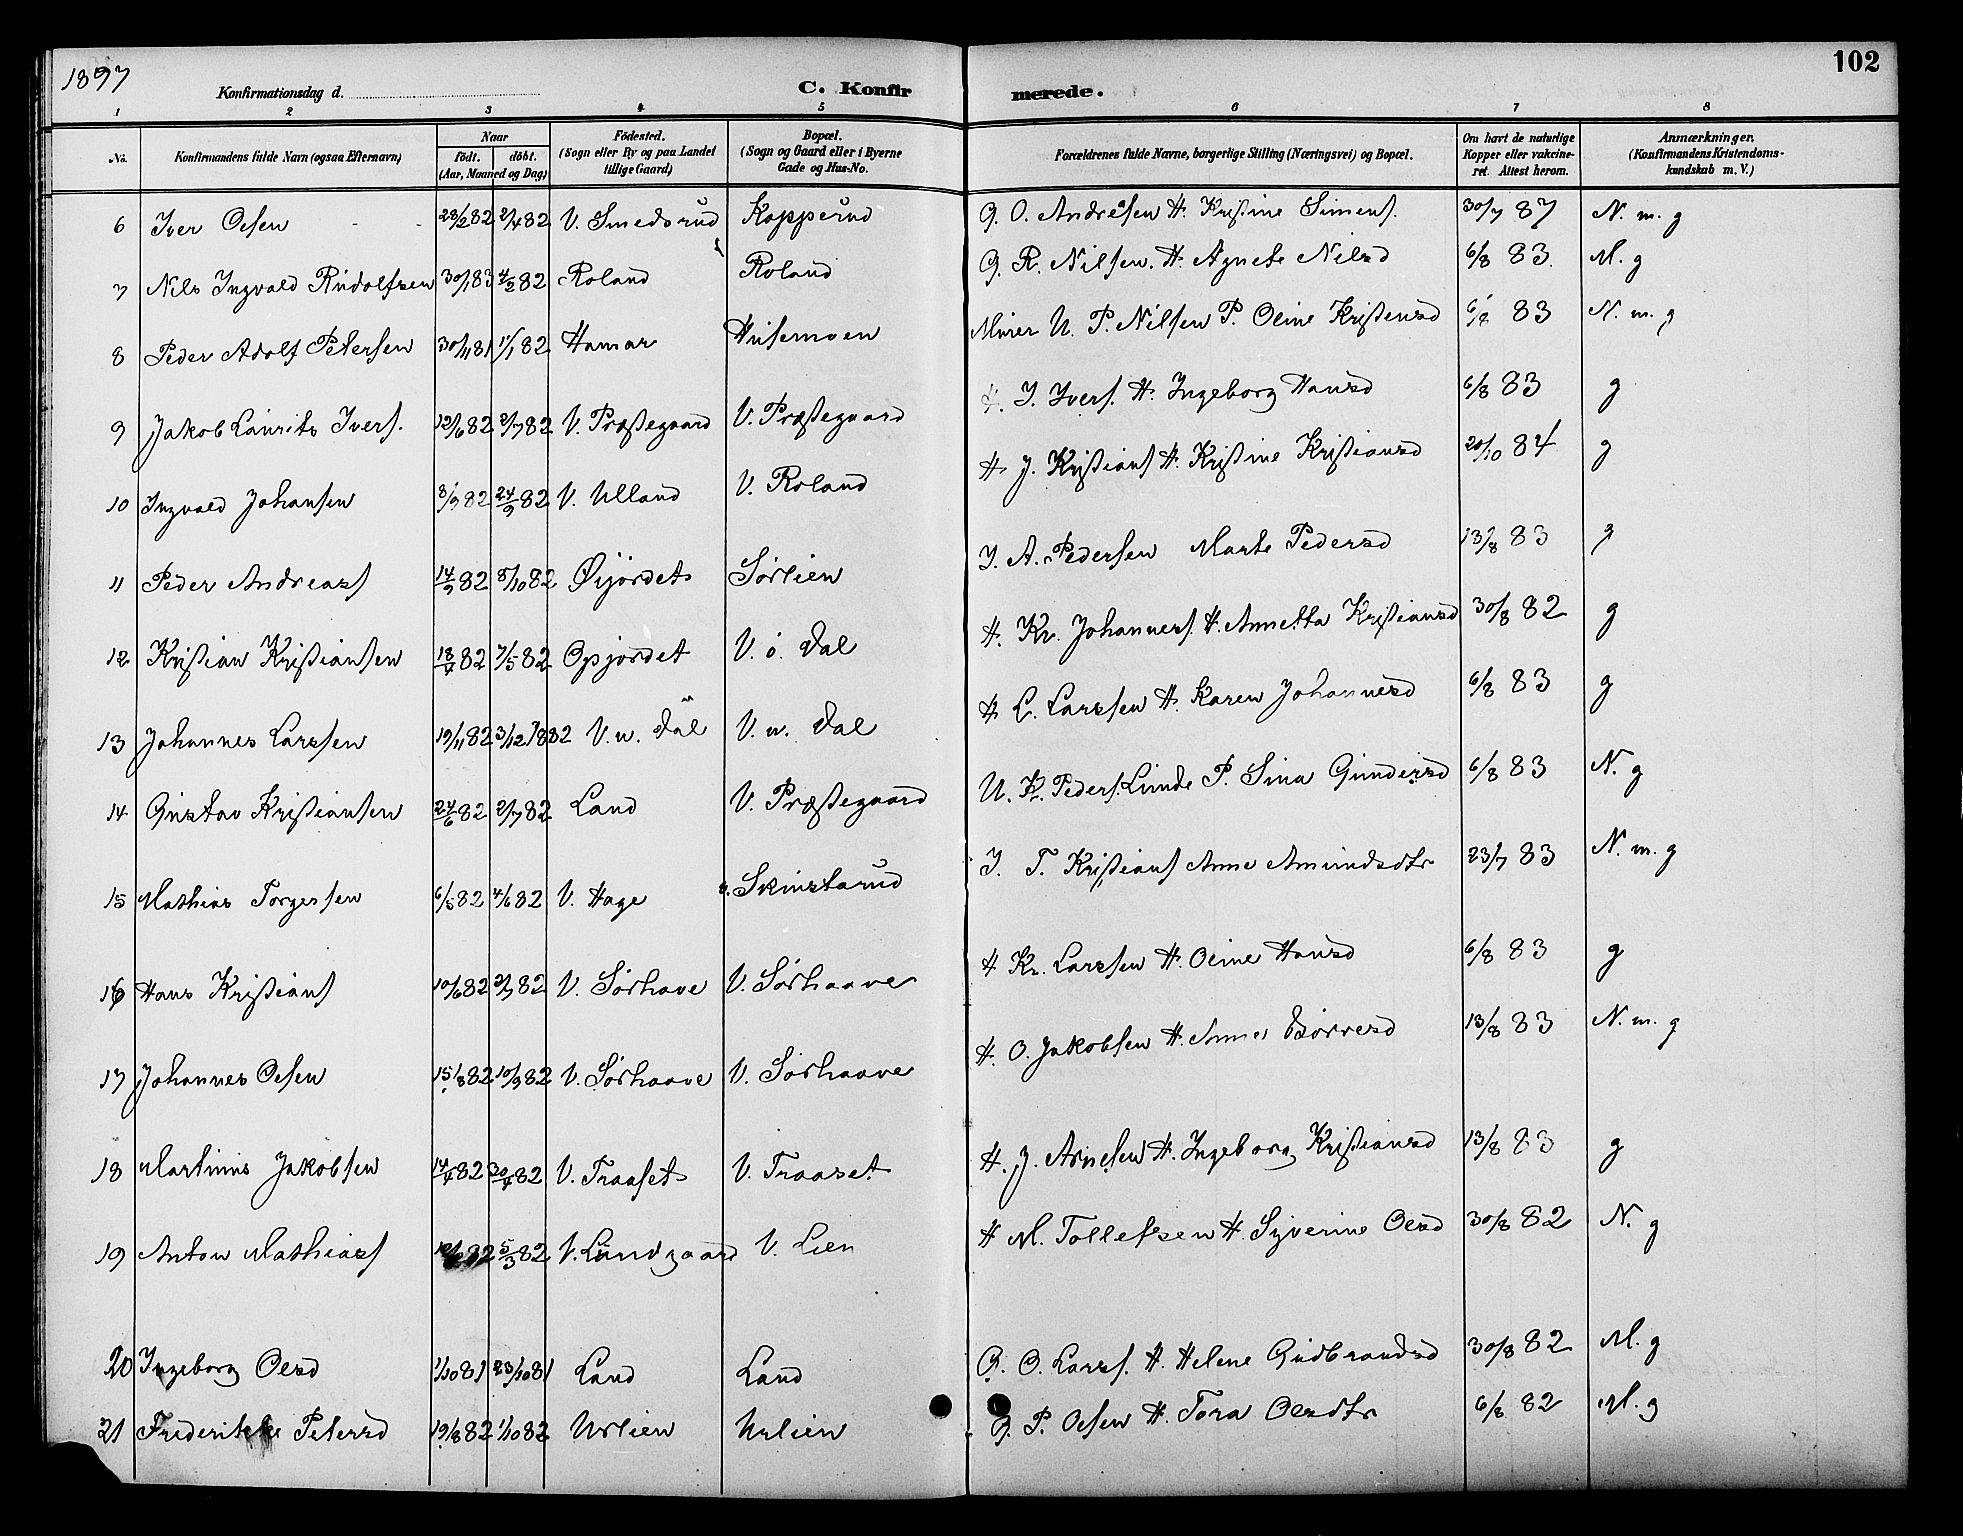 1897
102
Konfirmationsdag d.
C. Konfirmerede.
1 2 3 4 5 6 7 8
No. Konfirmandens fulde Navn (ogsaa Efternavn) Naar födt. döbt. (Aar, Maaned og Dag) Födested. (Sogn eller By og paa Landet tillige Gaard) Bopæl. (Sogn og Gaard eller i Byerne Gade og Hus-No. Forældrenes fulde Navne, borgerlige Stilling (Næringsvei) og Bopæl. Om havt de naturlige Kopper eller vakcineret. Attest herom. Anmærkninger. (Konfirmandens Kristendomskundskab m. V.)
6 Iver Olsen 28/2 82 2/4 82 V. Smedsrud Kopperud G. O. Andresen H. Kristine Simens. 30/7 87 N. m. g
7 Nils Ingvald Rudolfsen 30/1 83 4/2 82 Roland Roland G. R. Nilsen. H. Agnete Nilsd 6/8 83. M. g
8 Peder Adolf Petersen 30/11 81 1/1 82 Hamar Husemoen Murer U. P. Nilsen P. Oline Kristensd 6/8 83 N. m. g
9 Jakob Laurits Ivers. 12/6 82 2/7 82 V. Præstegaard V. Præstegaard H. I. Ivers. H. Ingeborg Hansd 6/8 83 g
10 Ingvald Johansen 8/9 82 24/9 82 V. Ulland V. Roland H J. Kristians H. Kristine Kristiansd 20/10 84 g
11 Peder Andreass 14/9 82 8/10 82 Øijordet Sørlien I. A. Pedersen Marte Pedersd 13/8 83 g
12 Kristian Kristiansen 18/4 82 7/5 82 Opjordet V. ö. Dal H. Kr. Johanness. H. Annetta Kristiansd 30/8 82 g
13 Johannes Larssen 19/11 82 3/12 1882 V. n. Dal V. n. Dal H L. Larssen H. Karen Johannesd 6/8 83 g
14 Gustav Kristiansen 24/6 82 2/7 82 Land V. Præstegaard U. K. Peders. Linde P. Sina Gundersd 6/8 83 N. g
15 Mathias Torgersen 6/5 82 4/6 82 V. Hage Skinstarud I. T. Kristians Anne Amundsdtr 23/7 83 N. m. g
16 Hans Kristians 10/6 82 2/7 82 V. Sørhave V. Sørhaave H Kr. Larssen H. Oline Hansd 6/8 83 g
17 Johannes Olsen 15/8 82 10/9 82 V. Sørhaave V. Sørhaave H. O. Jakobsen H. Anne Børresd 13/8 83 N. m. g
18 Martinus Jakobsen 14/4 82 30/4 82 V. Traaset V. Traaset H. J. Arnesen H. Ingeborg Kristiansd 13/8 83 g
19 Anton Mathiass 82 5/3 82 V. Lundgaard V. Lien H M. Tollefsen H. Syverine Olsd 30/8 82 N. g
20 Ingeborg Olsd 1/10 81 23/10 81 Land Land G. O. Larss. H. Helene Gudbrandsd 30/8 82 M. g
21 Frederikke Petersd 19/8 82 1/10 82 Urlien Urlien G. P. Olsen H. Tora Olsdtr 6/8 82 M. g